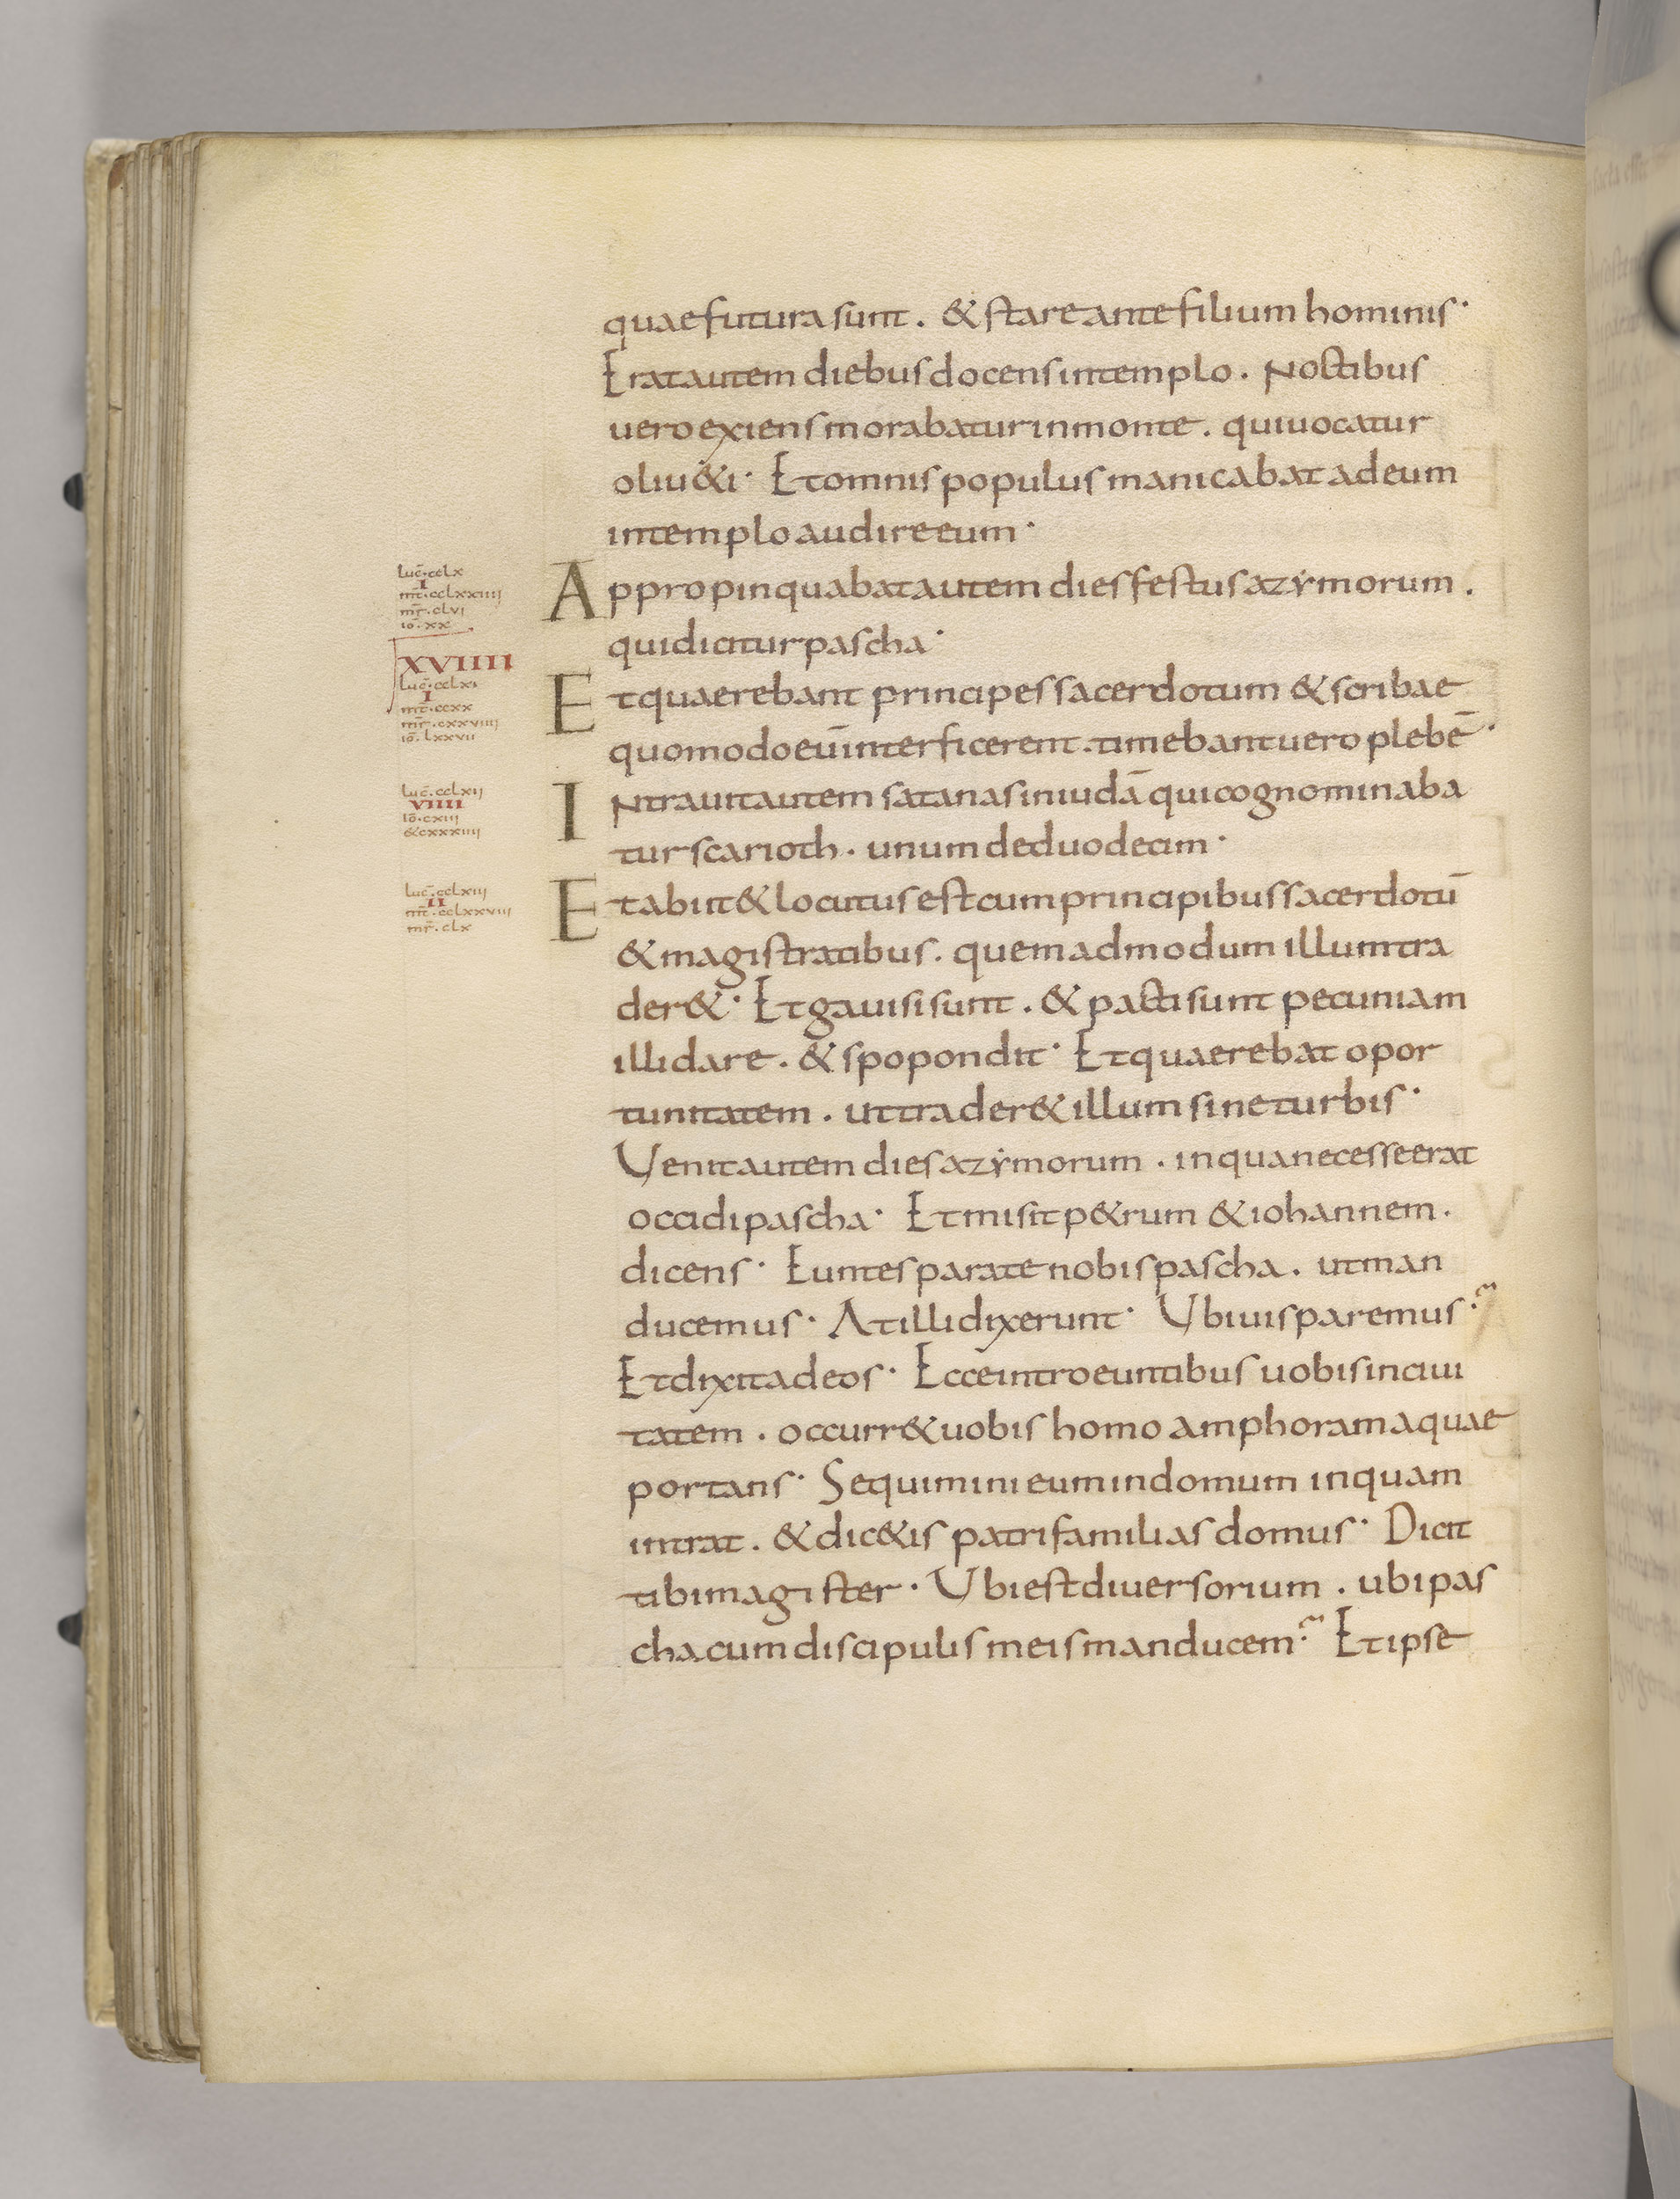 quae futura sunt. & stare ante filium hominis·
Erat autem diebus docens in templo. Noctibus
uero exiens morabatur in monte. qui uocatur
oliu&i· Et omnis populus manicabat ad eum
in templo audire eum·
luc̄. cclx
I
mt̄. cclxxiiii
mr̄. clvi
io̅. xx
Appropinquabat autem dies festus azẏmorum.
qui dicitur pascha·
XVIIII
luc̄. cclxi
I
mt̄. ccxx
mr̄. cxxviiii
io̅. lxxvii
Et quaerebant principes sacerdotum & scribae
quomodo eū interficerent. timebant uero plebē·
luc̄. cclxii
VIIII
io̅. cxiii
&cxxxiiii
INtrauit autem satanas in iudā qui cognominaba
tur scarioth. unum de duodecim·
luc̄. cclxiii
II
mt̄. cclxxviii
mr̄. clx
Et abiit & locutus est cum principibus sacerdotū
& magistratibus. quemadmodum illum tra
der&· Et gauisi sunt. & pacti sunt pecuniam
illi dare. & spopondit· Et quaerebat opor
tunitatem. ut trader& illum sine turbis·
Venit autem dies azẏmorum. in qua necesse erat
occidi pascha· Et misit p&rum & iohannem.
dicens· Euntes parate nobis pascha. ut man
ducemus· At illi dixerunt· Vbi uis paremus·
Et dixit ad eos· Ecce introeuntibus uobis in ciui
tatem. occurr& uobis homo amphoram aquae
portans· Sequimini eum in domum in quam
intrat. & dic&is patri familias domus· Dicit
tibi magister· Vbi est diuersorium. ubi pas
cha cum discipulis meis manducem· Et ipse